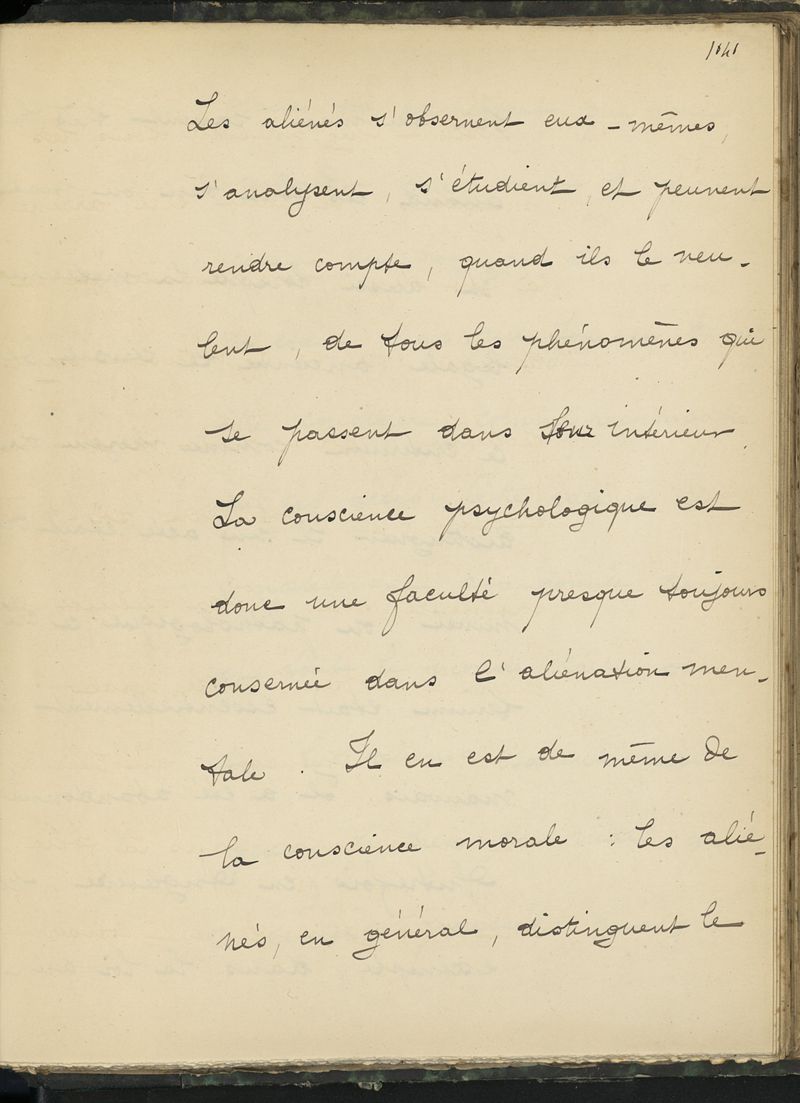 141
Les aliénés s'observent eux-mêmes,
s'analysent, s'étudient, et peuvent
rendre compte, quand ils le veu-
lent, de tous les phénomènes qui
se passent dans leur intérieur.
La conscience psychologique est
donc une faculté presque toujours
conservée dans l'aliénation men-
tale. Il en est de même de
la conscience morale : les alié-
nés, en général, distinguent le